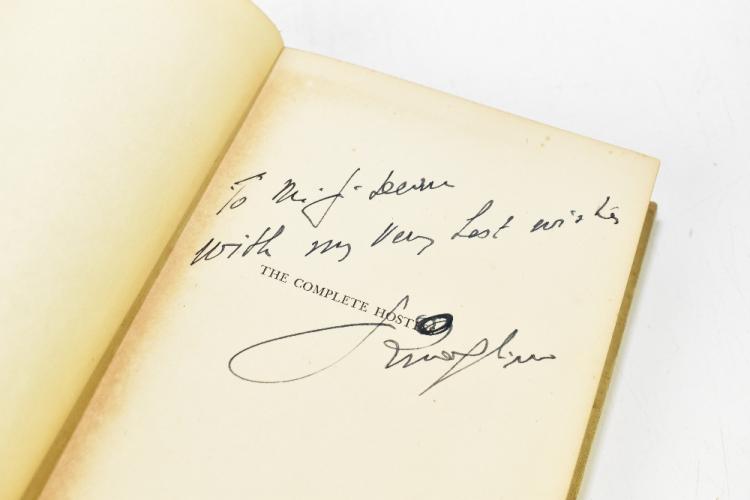 To Mr J.
with my very best wishes
THE COMPLETE HOST
Quaglino